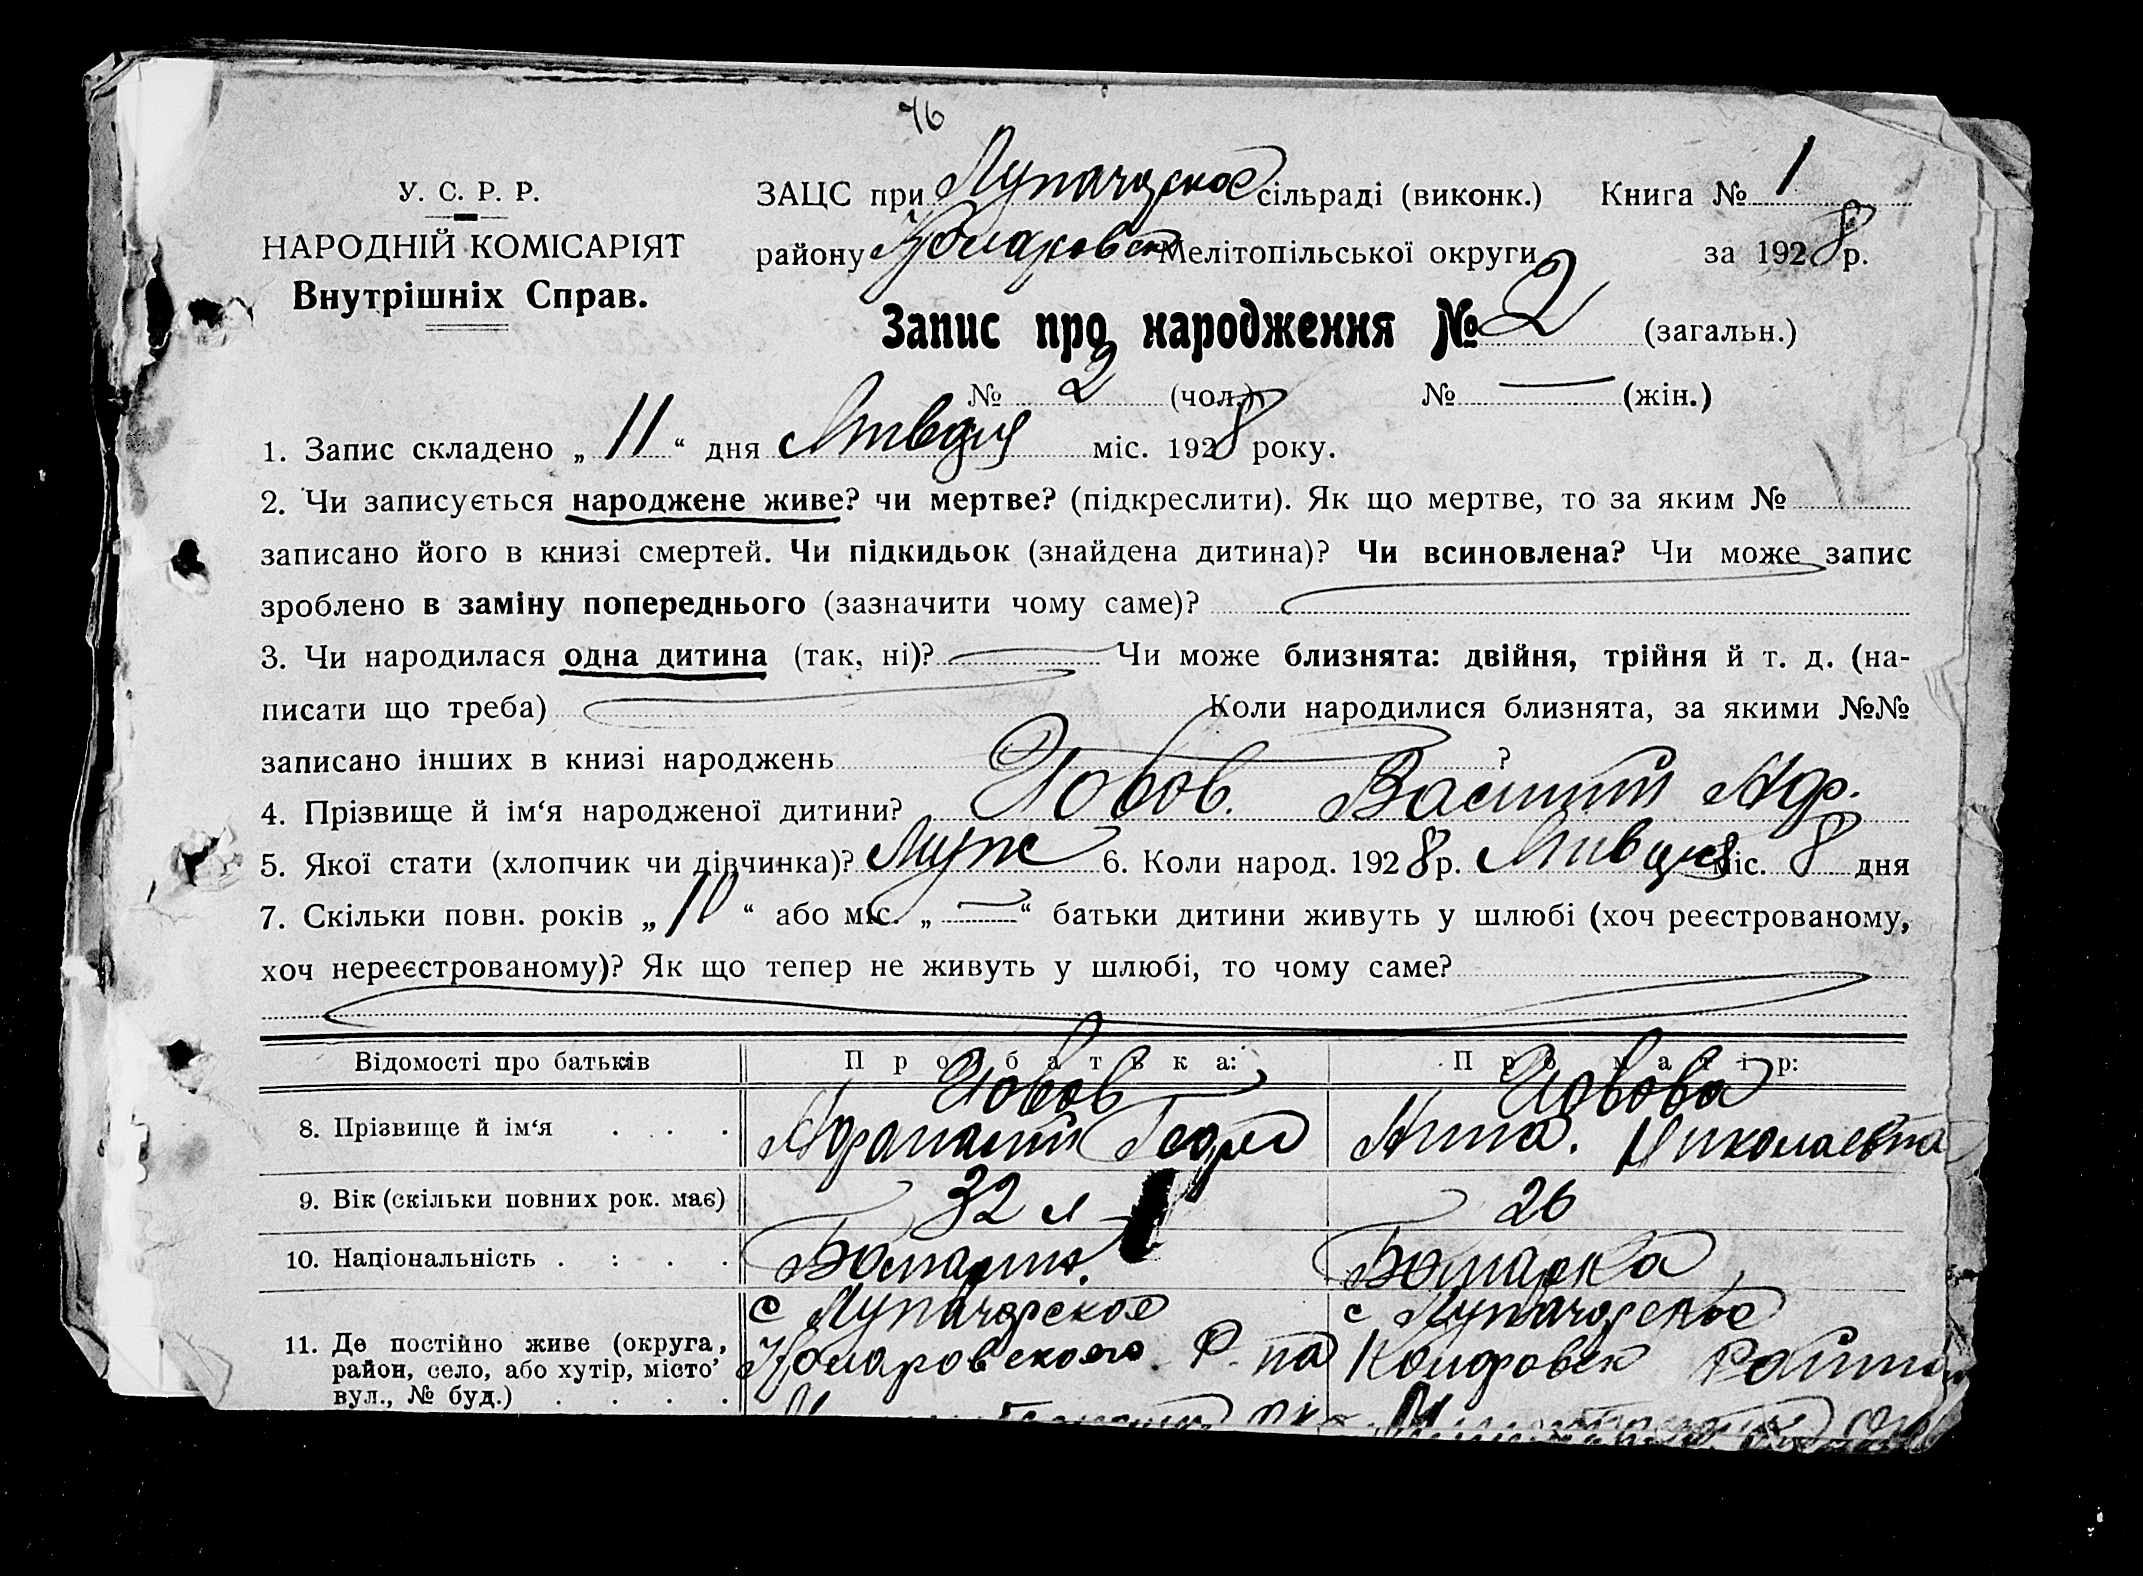 76
У. С. Р. Р.
НАРОДНІЙ КОМІСАРІЯТ
Внутрішніх Справ.
ЗАЦС при Луначарское сільраді (виконк.) Книга № 1
району Коларовск Мелітопільської округи за 1928 р.
Запис про народження № 2 (загальн.)
№ 2 (чол.) № — (жін.)
1. Запис складено „ 11 “ дня Января міс. 1928 року.
2. Чи записується народжене живе? чи мертве? (підкреслити). Як що мертве, то за яким №
записано його в книзі смертей. Чи підкидьок (знайдена дитина)? Чи всиновлена? Чи може запис
зроблено в заміну попереднього (зазначити чому саме)?
3. Чи народилася одна дитина (так, ні)? Чи може близнята: двійня, трійня й т. д. (на-
писати що треба) Коли народилися близнята, за якими №№
записано інших в книзі народжень ?
4. Прізвище й ім‘я народженої дитини? Йовов. Василий Аф.
5. Якої стати (хлопчик чи дівчинка)? Муж 6. Коли народ. 1928 р. Января міс. 8 дня
7. Скільки повн. років „ 10 “ або міс. „ — “ батьки дитини живуть у шлюбі (хоч реєстрованому,
хоч нереєстрованому)? Як що тепер не живуть у шлюбі, то чому саме?
Відомості про батьків Про батька: Про матір:
Йовов Йовова
8. Прізвище й ім‘я . . . . Афанасий Георг Анна. Николаевна
9. Вік (скільки повних рок. має) 32 л 26
10. Національність . : . . Болгарин. Болгарка
с Луначарское с Луначарское
11. Де постійно живе (округа, район, село, або хутір, місто’ вул., № буд.) . . . . Коларовского Р-на Коларовск Района